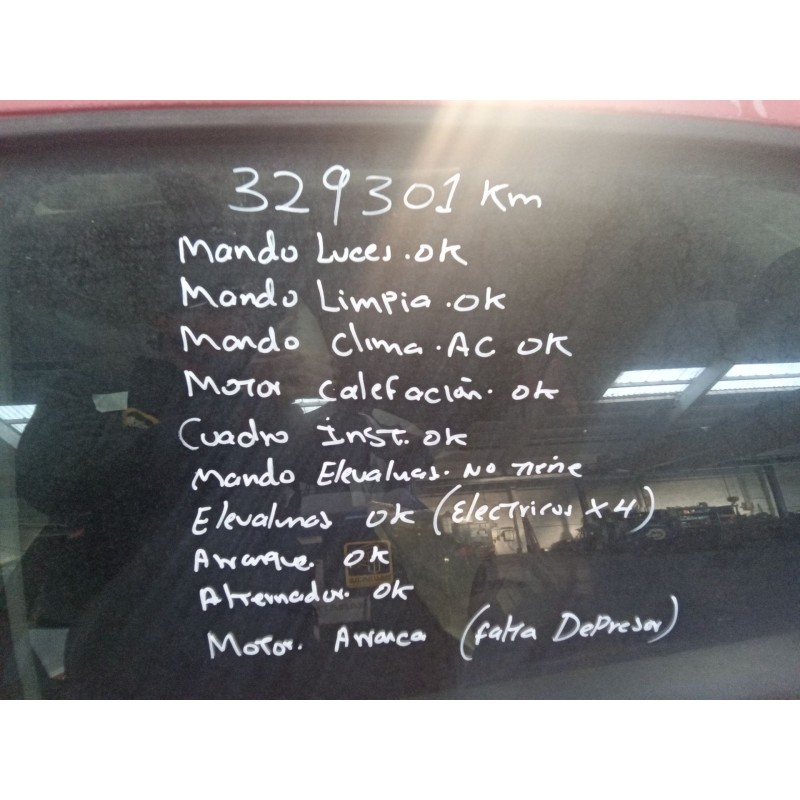 329301 Km
Mando Luces. ok
Mando Limpia. ok
Mando Clima. AC OK
Motor Calefacion. ok
Cuadro Inst. ok
Mando Elevalunas. No tiene
Elevalunas ok (Electricos x 4)
Arranque. OK
Alternador. ok
Motor. Arranca (falta Depresor)